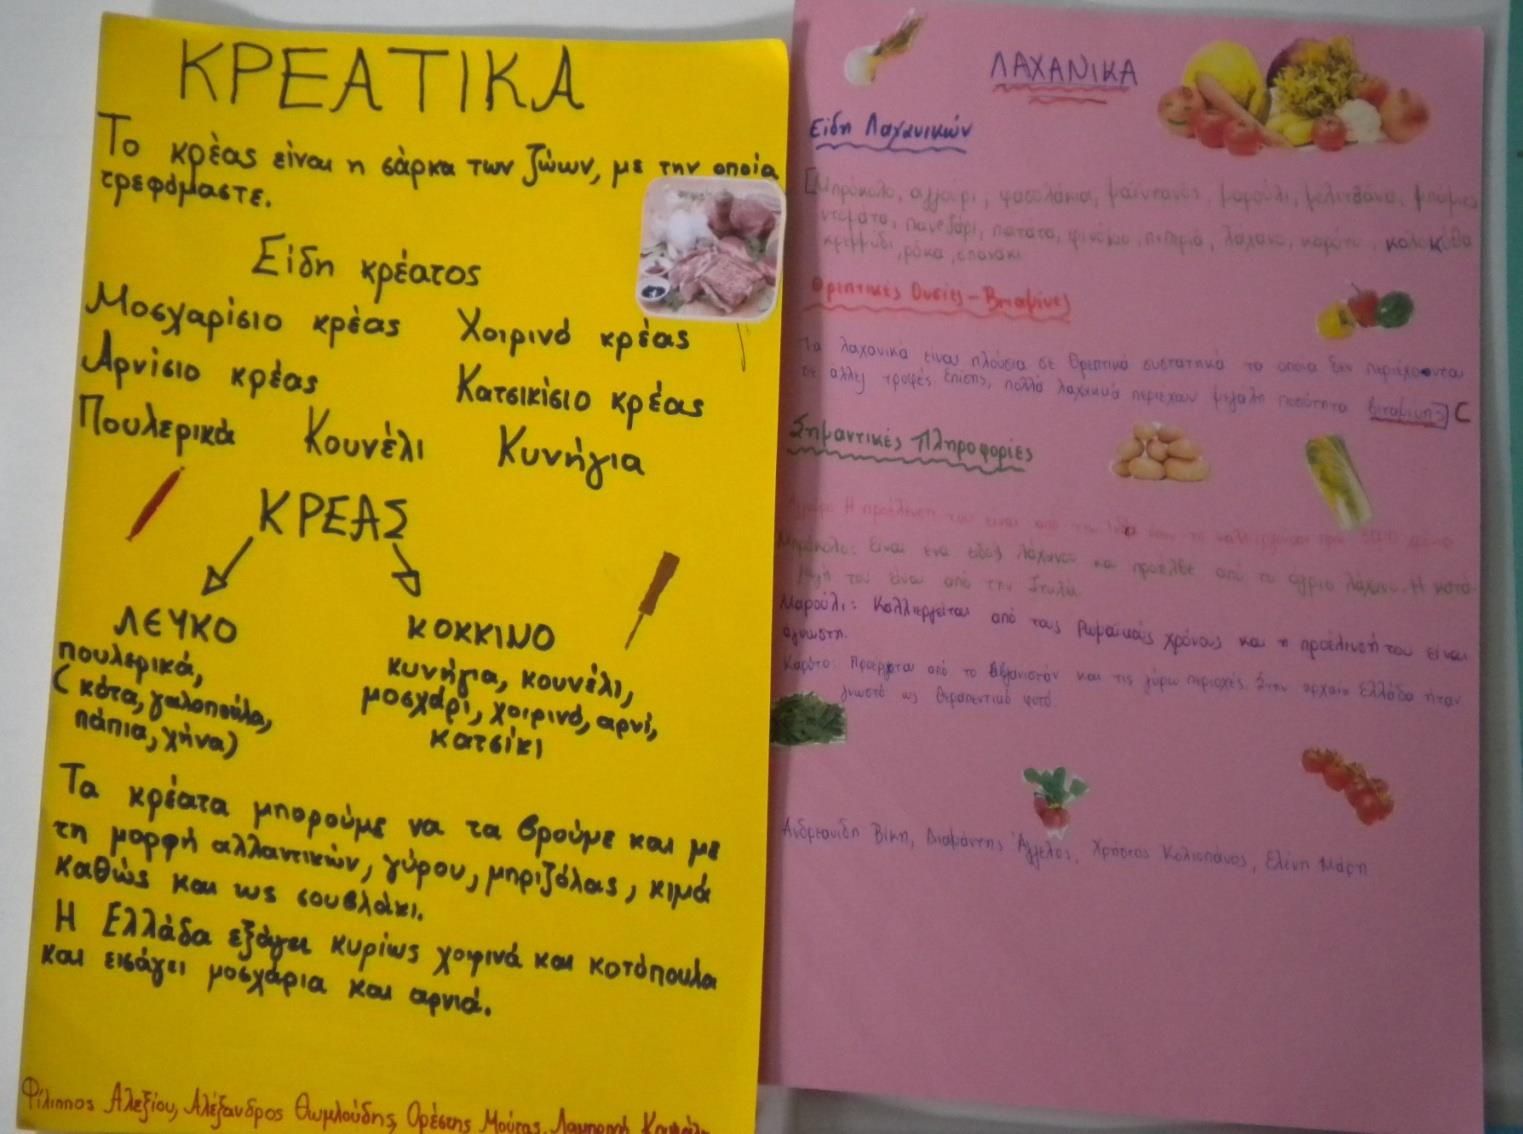 ΚΡΕΑΤΙΚΑ
Το κρέας είναι η σάρκα των ζώων, με την οποία
τρεφόμαστε.
Είδη κρέατος
Μοσχαρίσιο κρέας Χοιρινό κρέας
Αρνίσιο κρέας Κατσικίσιο κρέας
Πουλερικά Κουνέλι Κυνήγια
ΚΡΕΑΣ
ΛΕΥΚΟ ΚΟΚΚΙΝΟ
πουλερικά,
(κότα, γαλοπούλα,
πάπια, χήνα)
κυνήγια, κουνέλι,
μοσχάρι, χοιρινό, αρνί,
κατσίκι
Τα κρέατα μπορούμε να τα βρούμε και με
τη μορφή αλλαντικών, γύρου, μπριζόλας, κιμά
καθώς και ως σουβλάκι.
Η Ελλάδα εξάγει κυρίως χοιρινά και κοτόπουλα
και εισάγει μοσχάρια και αρνιά.
Φίλιππος Αλεξίου, Αλέξανδρος Θωμλούδης, Ορέστης Μούτας,
ΛΑΧΑΝΙΚΑ
Είδη Λαχανικών
Μπρόκολο, αγγούρι, φασολάκια, μαϊντανός, μαρούλι, μελιτζάνα, μπάμιες
ντομάτα, παντζάρι, πατάτα, φινόκιο, πιπεριά, λάχανο, καρότο, κολοκύθα
κρεμμύδι, ρόκα, σπανάκι
Θρεπτικές Ουσίες - Βιταμίνες
Τα λαχανικά είναι πλούσια σε θρεπτικά συστατικά τα οποία δεν περιέχονται
σε άλλες τροφές. Επίσης, πολλά λαχανικά περιέχουν μεγάλη ποσότητα βιταμίνης C
Σημαντικές Πληροφορίες
Αγγούρι: Η προέλευση του είναι από την
Μπρόκολο: Είναι ένα είδος λάχανου και προέλθε από το άγριο λάχανο. Η κατα-
γωγή του είναι από την Ιταλία
Μαρούλι: Καλλιεργείται από τους Ρωμαϊκούς χρόνους και η προέλευσή του είναι
άγνωστη.
Καρότο: Προέρχεται από το Αφγανιστάν και τις γύρω περιοχές. Στην αρχαία Ελλάδα ήταν
γνωστό ως θεραπευτικό φυτό.
Ανδρεανίδη Βίκη, Διαμάντης Άγγελος, Χρήστος Κολιοπάνος, Ελένη Μάρη